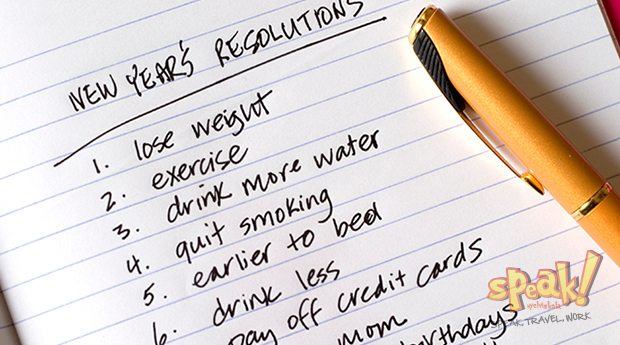 NEW YEAR'S RESOLUTIONS
1. lose weight
2. exercise
3. drink more water
4. quit smoking
5. earlier to bed
6. drink less
pay off credit cards
mom
birthdays
speak!
nyelviskola
SPEAK, TRAVEL, WORK